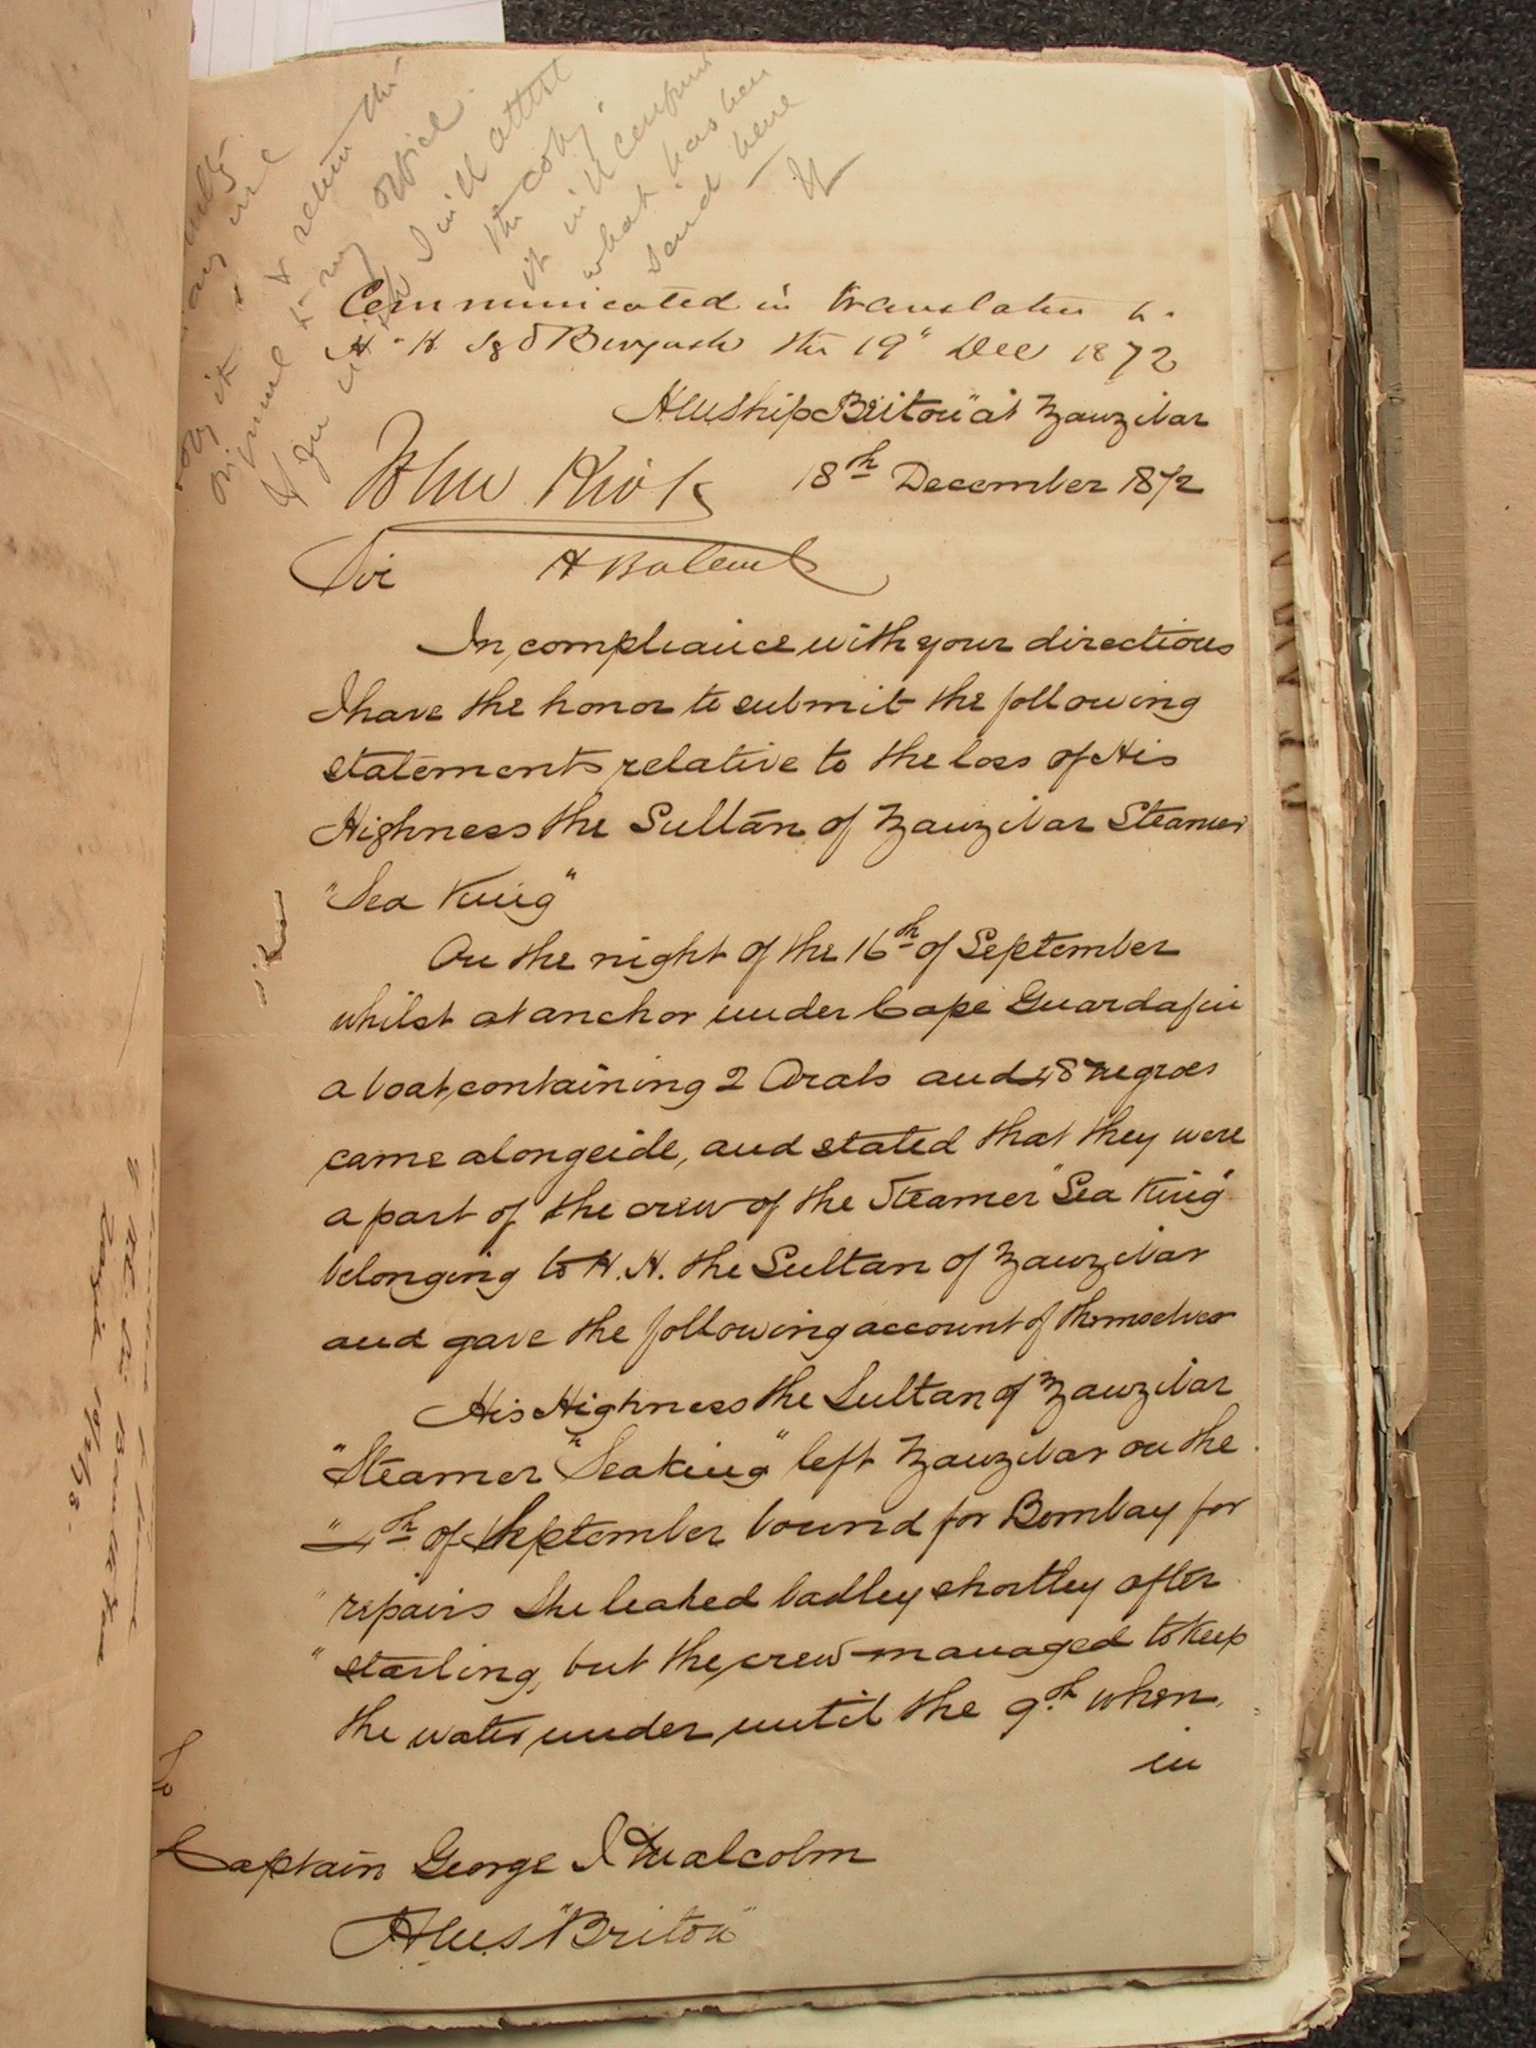 & return the
original to my office
If you wish I will attest
the copy.
it will confirm
what has been
said here
Communicated in translation to
H. H. Syd Burgash the 19" Dec 1872
John Kirk
H.M. Ship "Briton" at Zanzibar
18th December 1872
Sir
In compliance with your directions
I have the honor to submit the following
statements relative to the loss of His
Highness the Sultan of Zanzibar Steamer
"Sea King"
On the night of the 16th of September
whilst at anchor under Cape Guardafui
a boat, containing 2 Arabs and 48 negroes
came alongside, and stated that they were
a part of the crew of the Steamer "Sea King"
belonging to H. H. the Sultan of Zanzibar
and gave the following account of themselves
His Highness the Sultan of Zanzibar
"Steamer "Seaking" left Zanzibar on the
"4th of September bound for Bombay for
"repairs She leaked badley shortley after
"starling, but the crew managed to keep
the water under until the 9th when,
in
To
Captain George I Malcolm
H.M.S "Briton"